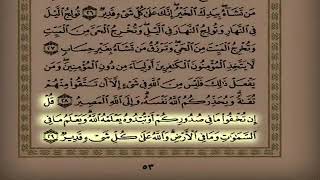 مَن تَشَآءُ بِيَدِكَ ٱلْخَيْرُ إِنَّكَ عَلَىٰ كُلِّ شَىْءٍ قَدِيرٌ ٢٦ تُولِجُ ٱلَّيْلَ
فِى ٱلنَّهَارِ وَتُولِجُ ٱلنَّهَارَ فِى ٱلَّيْلِ وَتُخْرِجُ ٱلْحَىَّ مِنَ ٱلْمَيِّتِ
وَتُخْرِجُ ٱلْمَيِّتَ مِنَ ٱلْحَىِّ وَتَرْزُقُ مَن تَشَآءُ بِغَيْرِ حِسَابٍ ٢٧
لَّا يَتَّخِذِ ٱلْمُؤْمِنُونَ ٱلْكَٰفِرِينَ أَوْلِيَآءَ مِن دُونِ ٱلْمُؤْمِنِينَ وَمَن
يَفْعَلْ ذَٰلِكَ فَلَيْسَ مِنَ ٱللَّهِ فِى شَىْءٍ إِلَّآ أَن تَتَّقُوا۟ مِنْهُمْ
تُقَىٰةً وَيُحَذِّرُكُمُ ٱللَّهُ نَفْسَهُۥ وَإِلَى ٱللَّهِ ٱلْمَصِيرُ ٢٨ قُلْ
إِن تُخْفُوا۟ مَا فِى صُدُورِكُمْ أَوْ تُبْدُوهُ يَعْلَمْهُ ٱللَّهُ وَيَعْلَمُ مَا فِى
ٱلسَّمَٰوَٰتِ وَمَا فِى ٱلْأَرْضِ وَٱللَّهُ عَلَىٰ كُلِّ شَىْءٍ قَدِيرٌ ٢٩
٥٣